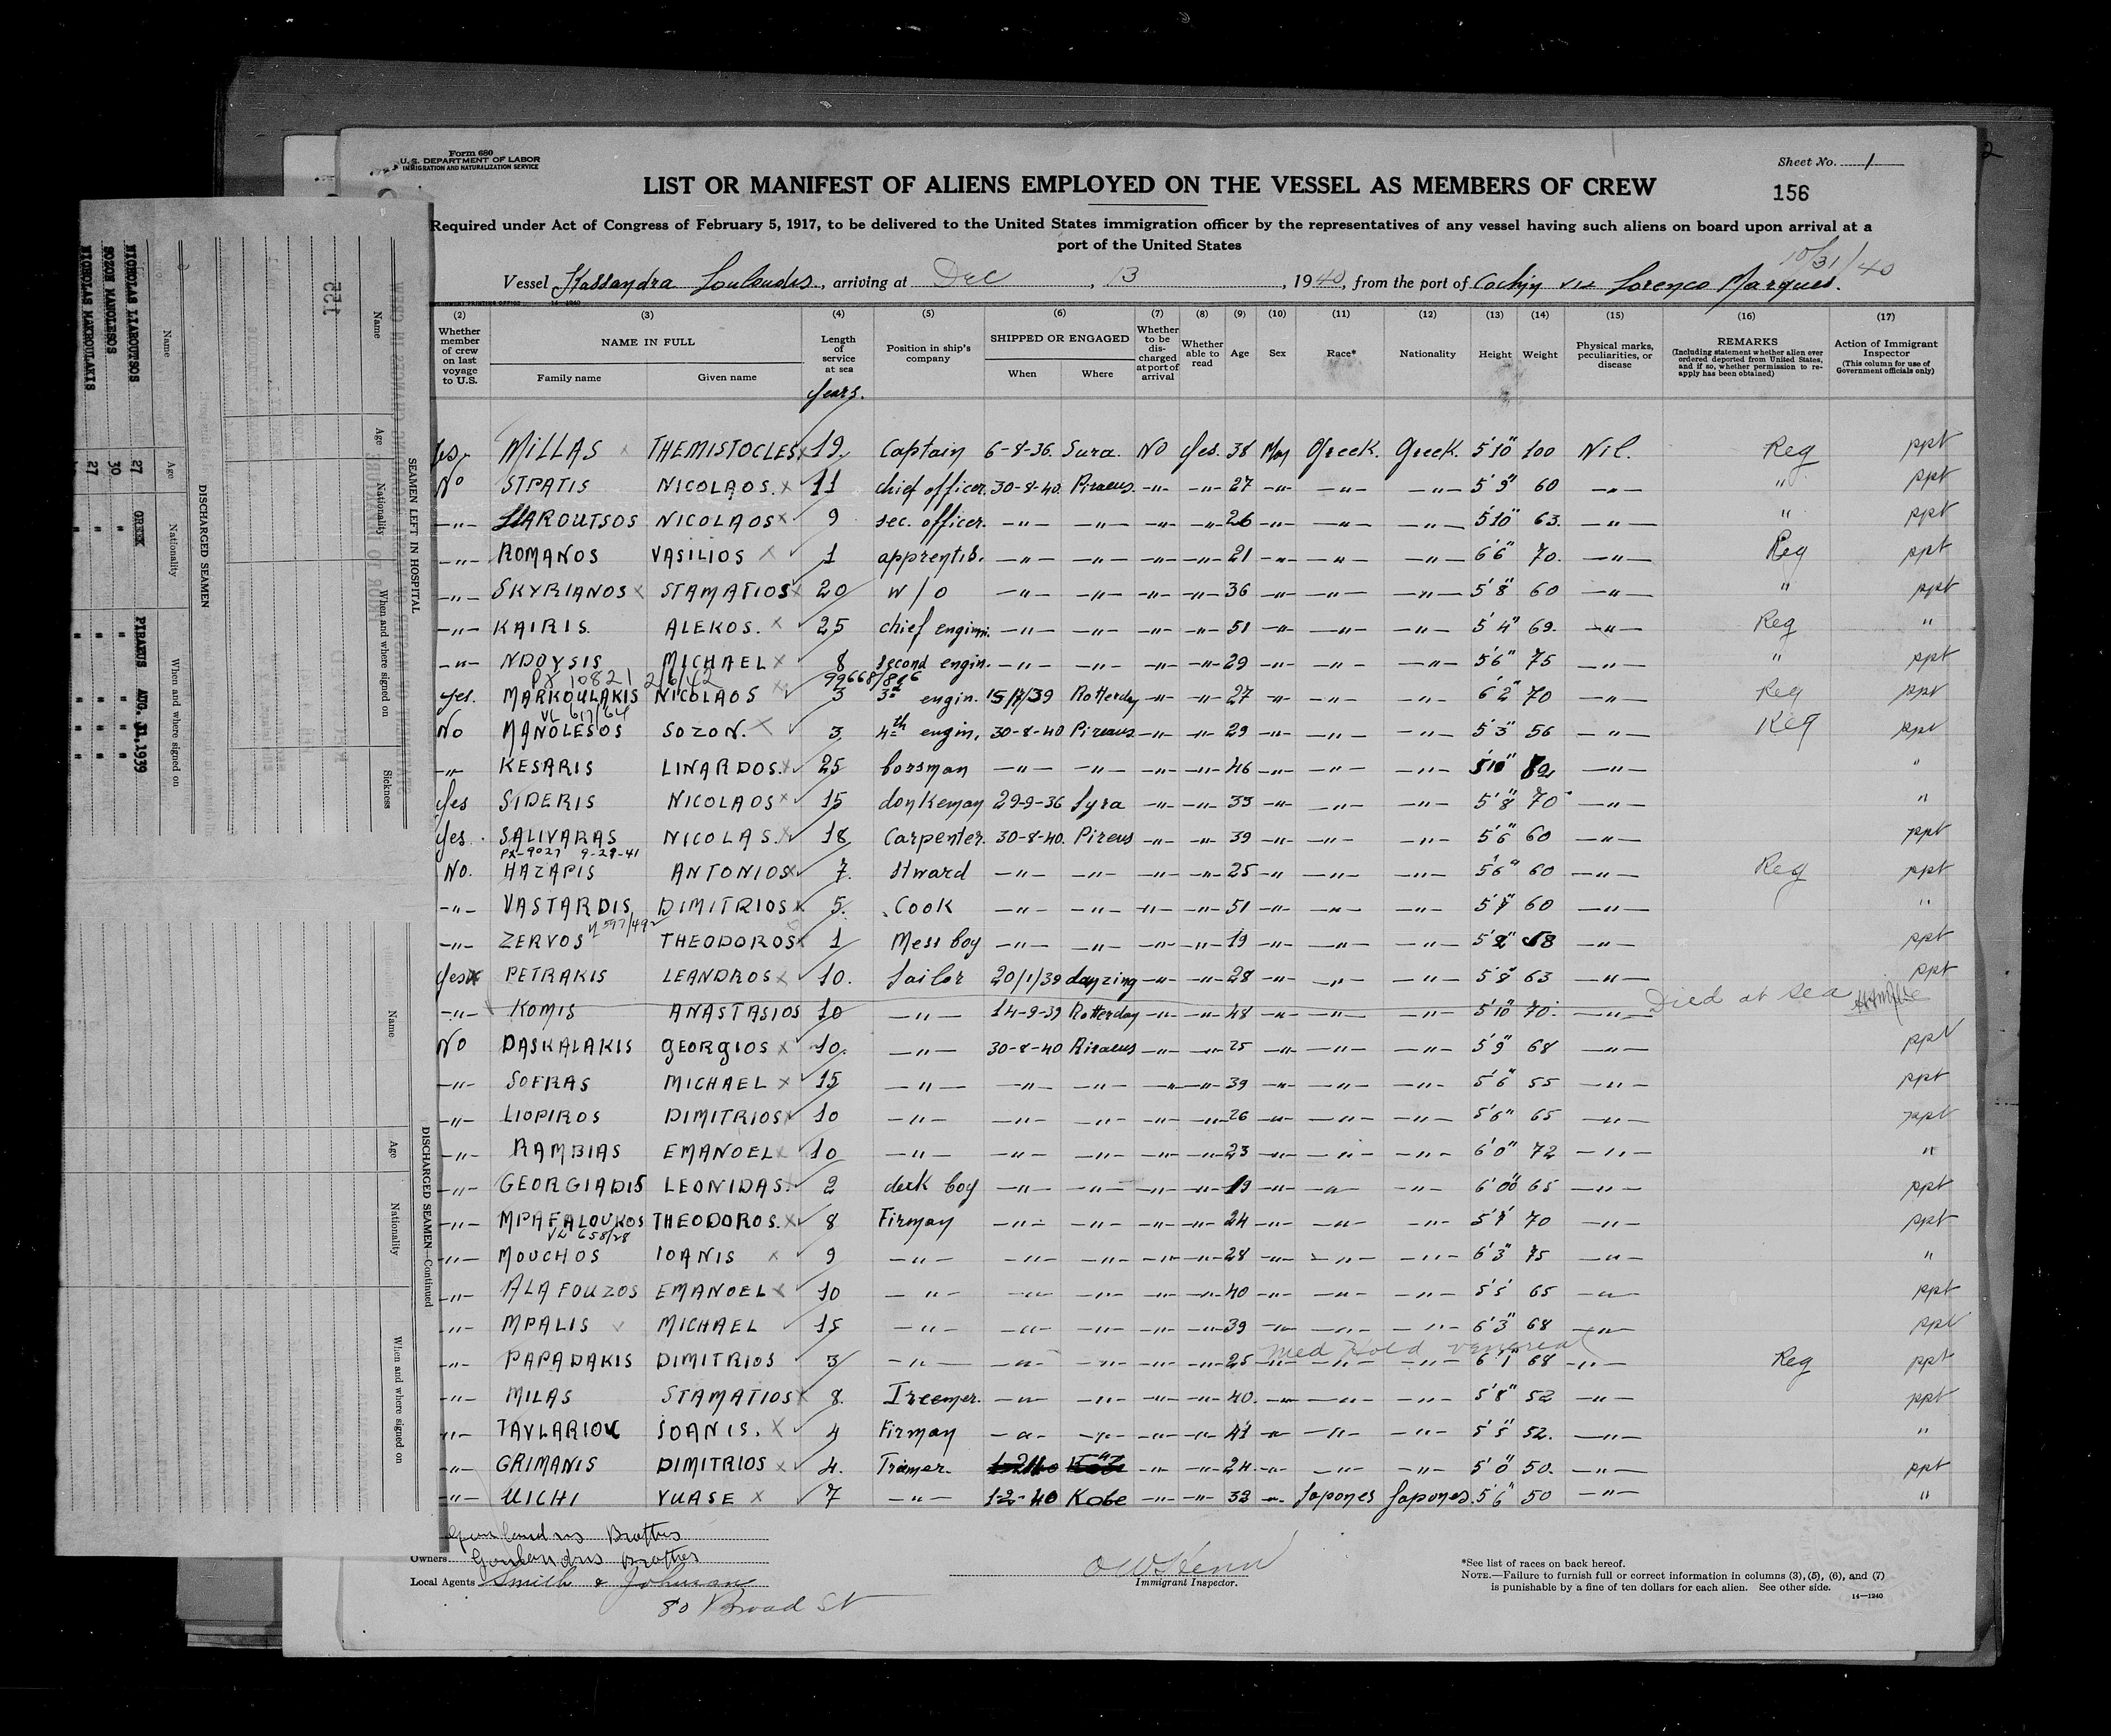 Form 680
U. S. DEPARTMENT OF LABOR
IMMIGRATION AND NATURALIZATION SERVICE
Sheet No. 1
2
LIST OR MANIFEST OF ALIENS EMPLOYED ON THE VESSEL AS MEMBERS OF CREW
156
Required under Act of Congress of February 5, 1917, to be delivered to the United States immigration officer by the representatives of any vessel having such aliens on board upon arrival at a
port of the United States
10/31/40
Vessel Kassandra Louloudis, arriving at Dec, 13, 1940, from the port of Cochin via Lorenco Marques.
(2) (3) (4) (5) (6) (7) (8) (9) (10) (11) (12) (13) (14) (15) (16) (17)
Whether member of crew on last voyage to U.S. NAME IN FULL Family name Given name Length of service at sea Position in ship's company SHIPPED OR ENGAGED When Where Whether to be discharged at port of arrival Whether able to read Age Sex Race* Nationality Height Weight Physical marks, peculiarities, or disease REMARKS (Including statement whether alien ever ordered deported from United States, and if so, whether permission to reapply has been obtained) Action of Immigrant Inspector (This column for use of Government officials only)
years.
Yes MILLAS THEMISTOCLES 19 Captain 6-8-36. Syra. NO Yes. 38 Greek. Greek. 5'10" 100 Nil. Reg ppt
No STPATIS NICOLAOS. 11 chief officer. 30-8-40. Piraeus. -"- -"- 27 -"- -"- -"- 5'9" 60 -"- " ppt
-"- LIAROUTSOS NICOLAOS 9 sec. officer. -"- -"- -"- -"- 26 -"- -"- -"- 5'10" 63. -"- " ppt
-"- ROMANOS VASILIOS 1 apprentis. -"- -"- -"- -"- 21 -"- -"- -"- 6'6" 70. -"- Reg ppt
-"- SKYRIANOS STAMATIOS 20 W/O -"- -"- -"- -"- 36 -"- -"- -"- 5'8" 60 -"- " ppt
-"- KAIRIS. ALEKOS. 25 chief engini. -"- -"- -"- -"- 51 -"- -"- -"- 5'4" 69. -"- Reg "
-"- NDOYSIS MICHAEL 8 second engin. -"- -"- -"- -"- 29 -"- -"- -"- 5'6" 75 -"- " ppt
PX 10821 2/6/42 99668/816
Yes. MARKOULAKIS NICOLAOS 3 3rd engin. 15/7/39 Rotterday -"- -"- 27 -"- -"- -"- 6'2" 70 -"- Reg ppt
VL 617/64
No MANOLESOS SOZON. 3 4th engin. 30-8-40 Pireaus -"- -"- 29 -"- -"- -"- 5'3" 56 -"- Reg ppt
-"- KESARIS LINARDOS. 25 bosman -"- -"- -"- -"- 46 -"- -"- -"- 5'10" 80 -"- "
Yes SIDERIS NICOLAOS 15 donkeman 29-9-36 Syra -"- -"- 33 -"- -"- -"- 5'8" 70 -"- "
Yes. SALIVARAS NICOLAS. 18 Carpenter. 30-8-40. Pireus -"- -"- 39 -"- -"- -"- 5'6" 60 -"- ppt
PX-9027 9-29-41
No. HAZAPIS ANTONIOS 7. Stward -"- -"- -"- -"- 25 -"- -"- -"- 5'6" 60 -"- Reg ppt
-"- VASTARDIS DIMITRIOS 5. Cook -"- -"- -"- -"- 51 -"- -"- -"- 60 -"- "
597/492
-"- ZERVOS THEODOROS 1 Mess boy -"- -"- -"- -"- 19 -"- -"- -"- 5'2" 58 -"- ppt
Yes PETRAKIS LEANDROS 10. Sailor 20/1/39 danzing -"- -"- 28 -"- -"- -"- 5'8" 63 -"- ppt
-"- KOMIS ANASTASIOS 10 -"- 14-9-39 Rotterday -"- -"- 48 -"- -"- -"- 5'10" 70. -"- Died at sea
No DASKALAKIS GEORGIOS 10. -"- 30-8-40 Piraeus -"- -"- 25 -"- -"- -"- 5'9" 68 -"- ppt
-"- SOFRAS MICHAEL 15 -"- -"- -"- -"- -"- 39 -"- -"- -"- 5'6" 55 -"- ppt
-"- LIOPIROS DIMITRIOS 10 -"- -"- -"- -"- -"- 26 -"- -"- -"- 5'6" 65 -"- ppt
-"- RAMBIAS EMANOEL 10 -"- -"- -"- -"- -"- 23 -"- -"- -"- 6'0" 72 -"- "
-"- GEORGIADIS LEONIDAS. 2 deck boy -"- -"- -"- -"- 19 -"- -"- -"- 6'00" 65 -"- ppt
-"- MPAFALOUKOS THEODOROS. 8 Firman -"- -"- -"- -"- 24 -"- -"- -"- 70 -"- ppt
VL 658/28
-"- MOUCHOS IOANIS 9 -"- -"- -"- -"- -"- 28 -"- -"- -"- 6'3" 75 -"- "
-"- ALAFOUZOS EMANOEL 10 -"- -"- -"- -"- -"- 40 -"- -"- -"- 5'5" 65 -"- ppt
-"- MPALIS MICHAEL 15 -"- -"- -"- -"- -"- 39 -"- -"- -"- 6'3" 68 -"- ppt
Med Hold venereal
-"- PAPADAKIS DIMITRIOS 3 -"- -"- -"- -"- -"- 25 -"- -"- -"- 6'1" 68 -"- Reg ppt
-"- MILAS STAMATIOS 8. Treemer. -"- -"- -"- -"- 40. -"- -"- -"- 5'8" 52 -"- ppt
-"- TAVLARIOU IOANIS. 4 Firman -"- -"- -"- -"- 41 -"- -"- -"- 5'5" 52. -"- "
-"- GRIMANIS DIMITRIOS 4. Trimer. -"- -"- 24. -"- -"- -"- 5'0" 50. -"- ppt
-"- UICHI YUASE 7 -"- 1-2-40 Kobe -"- -"- 32 -"- Japones Japones. 5'6" 50 -"- "
Goulandris Brothers
Owners Goulandris Brothers
Local Agents Smith & Johnson
80 Broad St
Immigrant Inspector.
*See list of races on back hereof.
NOTE.—Failure to furnish full or correct information in columns (3), (5), (6), and (7)
is punishable by a fine of ten dollars for each alien. See other side.
14—1240
155
SEAMEN LEFT IN HOSPITAL
Name Age Nationality When and where signed on Sickness
DISCHARGED SEAMEN
Name Age Nationality When and where signed on
NICHOLAS LIAROUTSOS 27 GREEK PIRAEUS AUG. 31, 1939
SOZON MANOLESOS 30 " " "
NICHOLAS MARKOULAKIS 27 " " "
DISCHARGED SEAMEN—Continued
Name Age Nationality When and where signed on